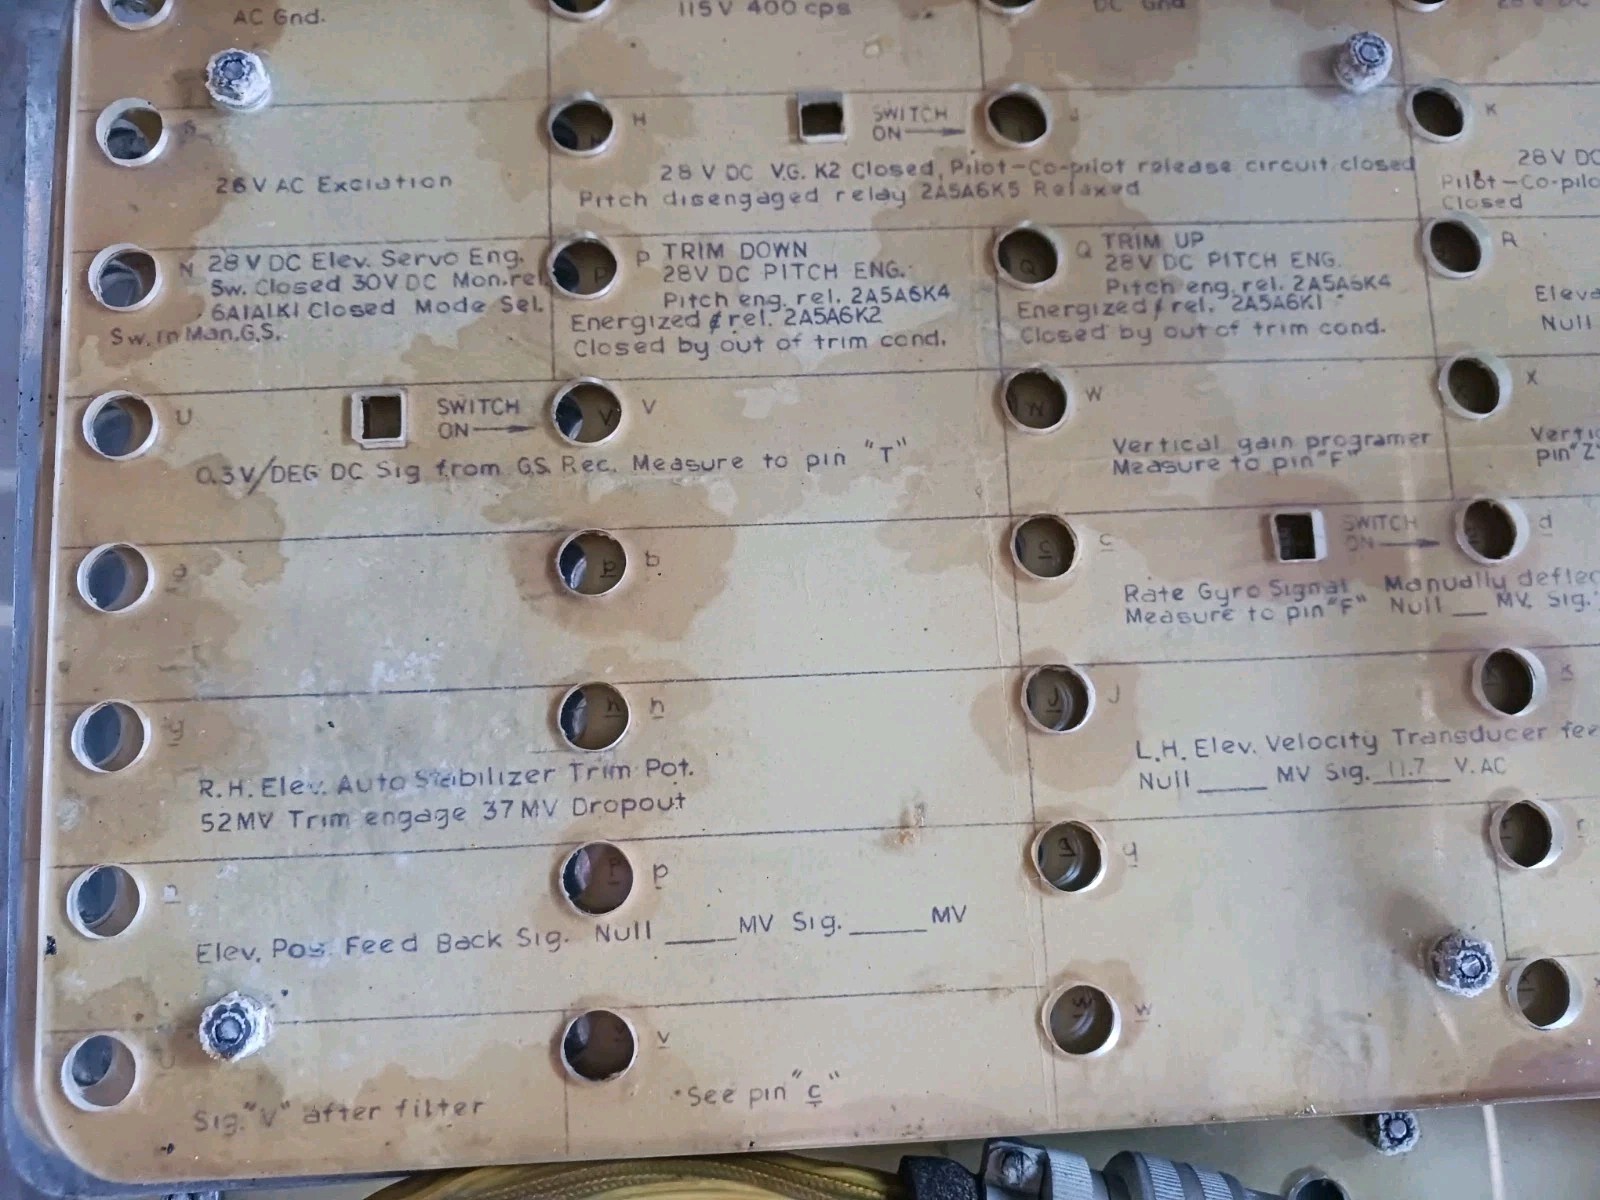 AC Gnd.
115V 400 cps
DC Gnd
H
SWITCH
ON
J
K
26V AC Exciation
28 V DC V.G. K2 Closed, Pilot-Co-pilot release circuit closed
Pitch disengaged relay 2A5A6K5 Relaxed
28V DC
Pilot-Co-pilo
Closed
N
28V DC Elev. Servo Eng.
Sw. Closed 30V DC Mon.rel.
6A1A1K1 Closed Mode Sel.
Sw. in Man.G.S.
P
P
TRIM DOWN
28V DC PITCH ENG.
Pitch eng. rel. 2A5A6K4
Energized & rel. 2A5A6K2
Closed by out of trim cond.
Q
Q
TRIM UP
28V DC PITCH ENG.
Pitch eng. rel. 2A5A6K4
Energized & rel. 2A5A6K1
Closed by out of trim cond.
R
Eleva
Null
U
SWITCH
ON
V
V
0.3V/DEG DC Sig from G.S. Rec. Measure to pin "T"
W
W
Vertical gain programer
Measure to pin "F"
X
Vertic
pin "Z"
a
b
c
c
SWITCH
ON
d
Rate Gyro Signal Manually deflec
Measure to pin "F" Null __ MV. Sig.
g
h
h
R.H. Elev. Auto Stabilizer Trim Pot.
52MV Trim engage 37MV Dropout
J
J
k
L.H. Elev. Velocity Transducer fee
Null ____ MV Sig. 11.7 V. AC
n
p
p
Elev. Pos. Feed Back Sig. Null ____ MV Sig. ____ MV
q
q
r
r
U
Sig. "V" after filter
v
See pin "c"
w
w
x